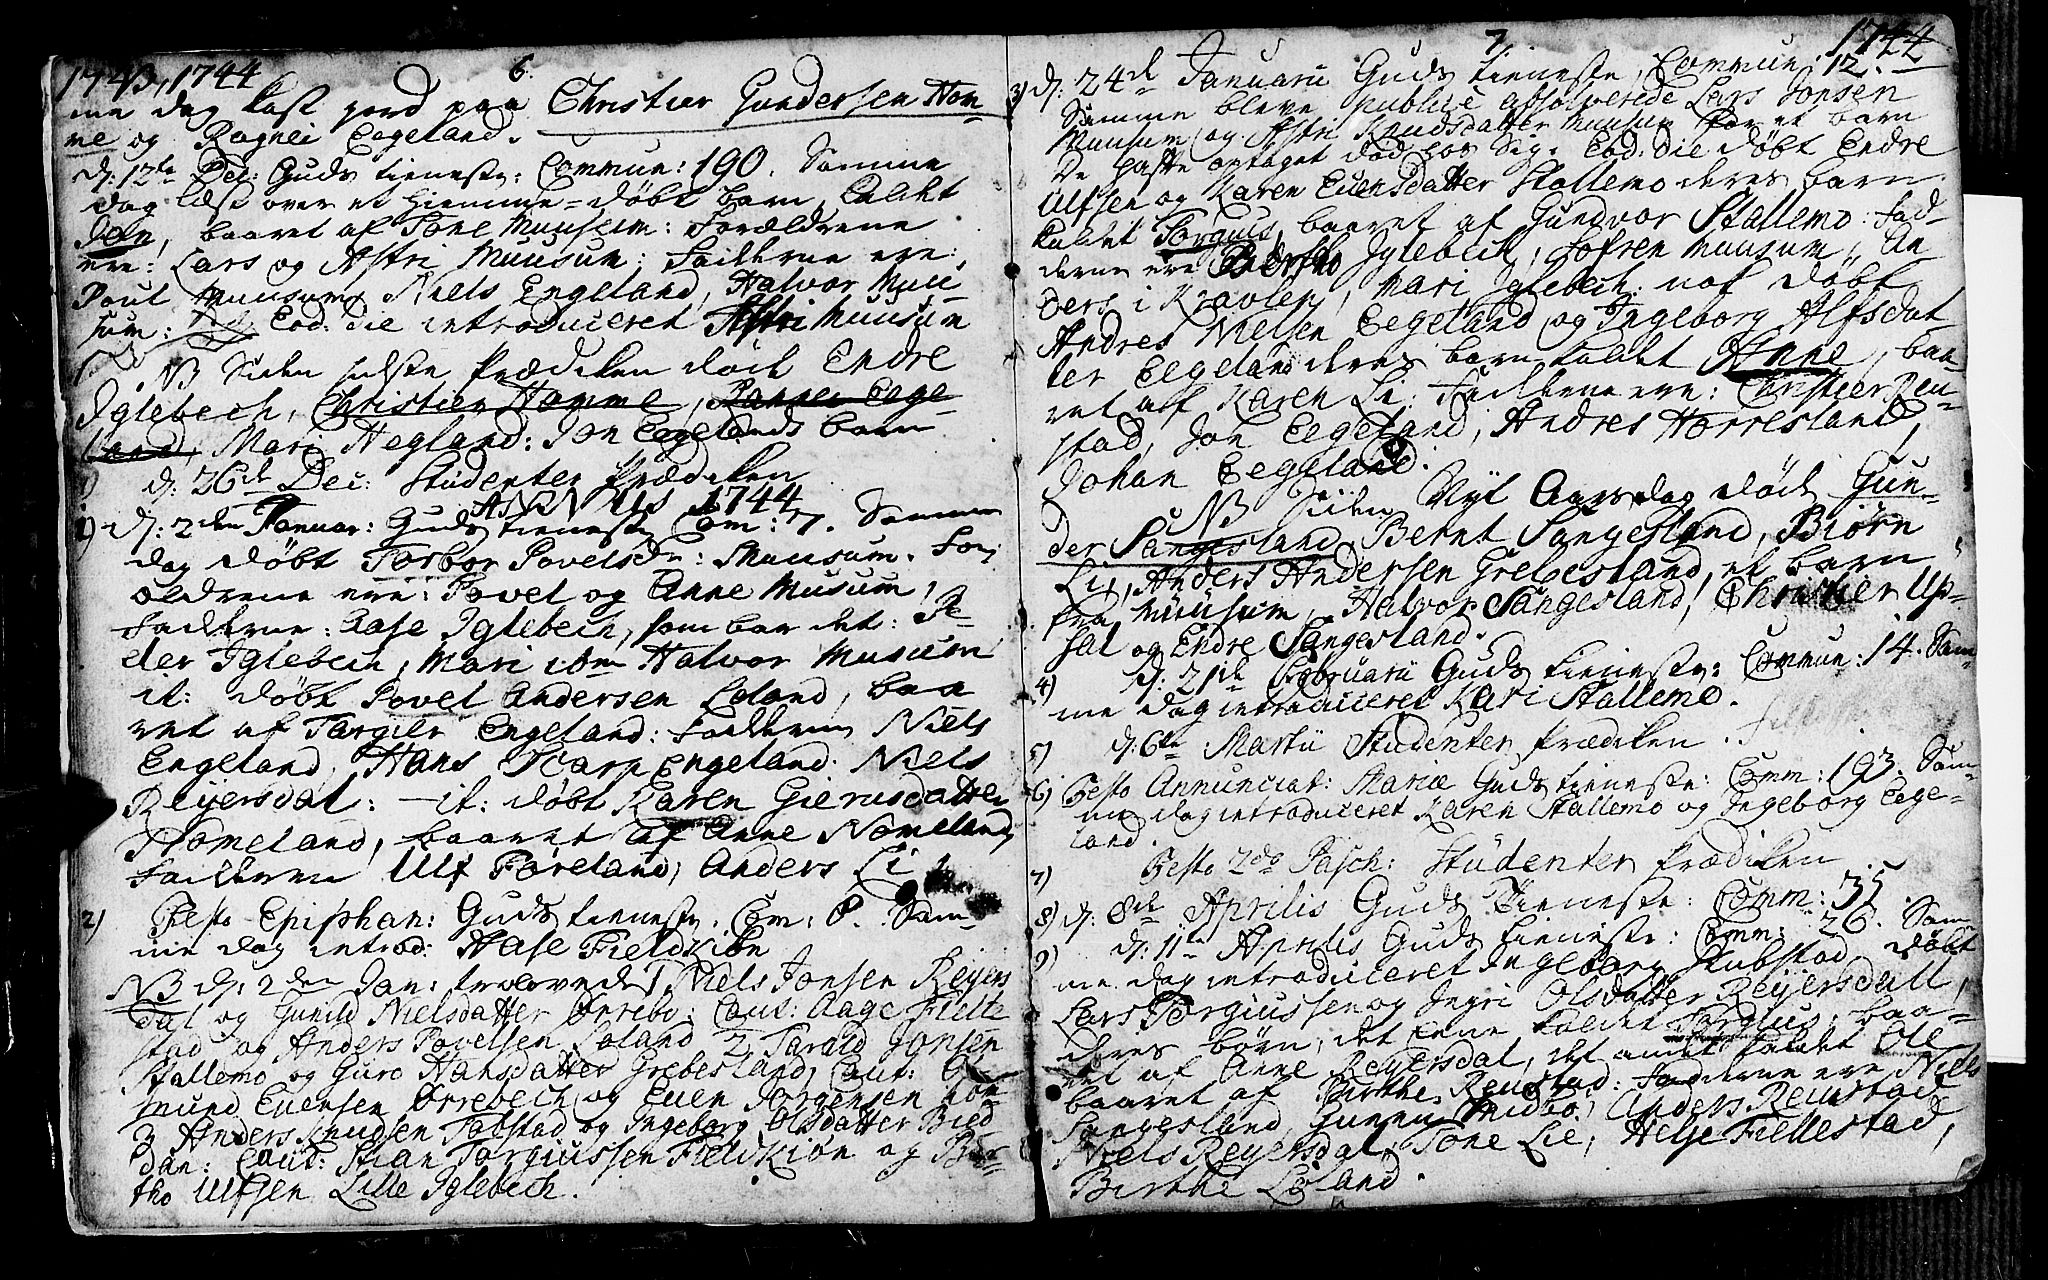 1743, 1744
6.
me dag kast jord paa Christier Gundersen Hom=
me og Ragnei Eegeland.
d: 12te Dec: Guds tieneste: Commun: 190. Samme
dag læst over et hiemme=døbt barn kaldt
Jon, baaret af Tone Muusum: Forældrene
ere: Lars og Astri Muusum: Fadderne ere:
Poul Muusum, Niels Engeland, Halvor Muu=
sum: Eod: die introduceret Astri Muusum
NB Siden sidste Prædiken døde Endre
Iglebech, Christier Homme, Ragnei Eege=
land, Mari Hegland: Jon Eegelands barn
d: 26de Dec: Studenter Prædiken
ANNUS 1744
1) d: 2den Januar: Guds tieneste Com: 7. Samme
dag døbt Torbor Povelsdr: Muusum. For=
ældrene ere: Povel og Anne Musum,
Fadderne: Aase Iglebech, som bar det: Pe=
der Iglebech, Mari Halvor Musum
it: døbt Povel Andersen Loland, baa
ret af Targier Engeland: Fadderne Niels
Engeland, Hans Engeland: Niels
Reijersdal: - it: døbt Karen Gierusdatter
Homeland, baaret af Anne Nomeland,
Fadderne Ulf Føreland, Anders Li
2) Festo Epiphan: Guds tieneste. Com: 8. Sam=
me dag introd: Aase Fieldkiøn
NB d: 2den Jan: trolovede 1 Niels Jonsen Reyers
dal og Gunild Nielsdatter Ørrebø: Caut: Aage Fields
stad og Anders Povelsen Loland 2 Tarald Jonsen
Stallemo og Guro Hansdatter Grebesland, Caut: O=
mund Evensen Ørrebech og Even Jørgensen
3 Anders Knudsen Tabstad og Ingeborg Olsdatter Bied=
dan: Caut: Stian Torgiussen Fieldkiøn og Bør=
tho Ulfsen Lille Iglebech.
7.
1744
3) d: 24de Januarii Guds tieneste, Commun: 12.
Samme bleve publice absolverede Lars Jonsen
Muusum og Astri Knudsdatter Muusum for et barn
De hafte optaget død hos sig. Eod: die døbt Endre
Ulfsen og Karen Evensdatter Stallemo deres barn
kaldet Torgius, baaret af Gundvor Stallemo: Fad=
derne ere Børtho Iglebech, Sofren Muusum, An
ders i Kravlen, Mari Iglebech: nok døbt
Andres Nielsen Eegeland og Ingeborg Alfsdat=
ter Eegeland deres barn kaldet Anne, baa=
ret aff Karen Li: Fadderne ere: Christier Reu=
stad, Jon Eegeland, Andres Horresland,
Johan Eegeland.
NB Siden Nyt Aarsdag døde Gun=
der Sangesland, Bernt Sangesland, Biørn
Li, Anders Andersen Grebesland, et barn
fra Muusum, Halvor Sangesland, Christier Up=
sal og Endre Sangesland.
4) d: 21de Februarii Guds tieneste: Commun: 14. Sam=
me dag introduceret Kari Stallemo.
5) d: 6te Martii Studenter Prædiken.
6) Festo Annunciat: Mariæ Guds tieneste: Comm: 193. Sam=
me dag introduceret Karen Stallemo og Ingeborg Eege=
land.
7) Festo 2do Pasch: Studenter Prædiken
8) d: 8de Aprilis Guds Tieneste: Comm: 35.
9) d: 11te Aprilis Guds tieneste: Comm: 26. Sam
me dag introduceret Ingeborg Skubstad døbt
Lars Torgiussen og Ingri Olsdatter Reyersdall,
deres børn, det eene kaldet Torgius, baa=
ret af Anne Reyersdal, det andet kaldet Ole
baaret af Birthe Reustad: Fadderne ere Niels
Sangesland, Gunne Midbø, Anders Reustad
Niels Reyersdal, Tone Lie, Helje Fiellestad,
Birthe Løland.